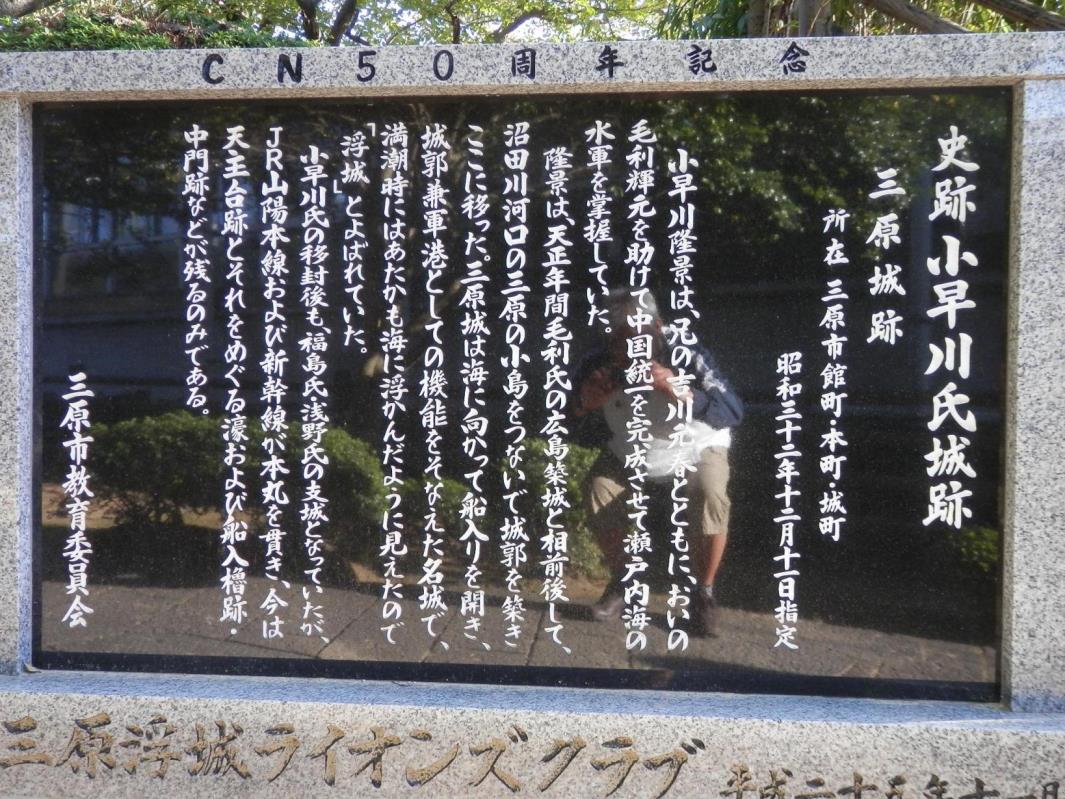 CN50周年記念
史跡小早川氏城跡
三原城跡
所在 三原市館町・本町・城町
昭和三十二年十二月十一日指定
小早川隆景は、兄の吉川元春とともに、おいの
毛利輝元を助けて中国統一を完成させて瀬戸内海の
水軍を掌握していた。
隆景は、天正年間毛利氏の広島築城と相前後して、
沼田川河口の三原の小島をつないで城郭を築き
ここに移った。三原城は海に向かって船入りを開き、
城郭兼軍港としての機能をそなえた名城で、
満潮時にはあたかも海に浮かんだように見えたので
「浮城」とよばれていた。
小早川氏の移封後も、福島氏・浅野氏の支城となっていたが、
JR山陽本線および新幹線が本丸を貫き、今は
天主台跡とそれをめぐる濠および船入櫓跡・
中門跡などが残るのみである。
三原市教育委員会
三原浮城ライオンズクラブ
平成二十